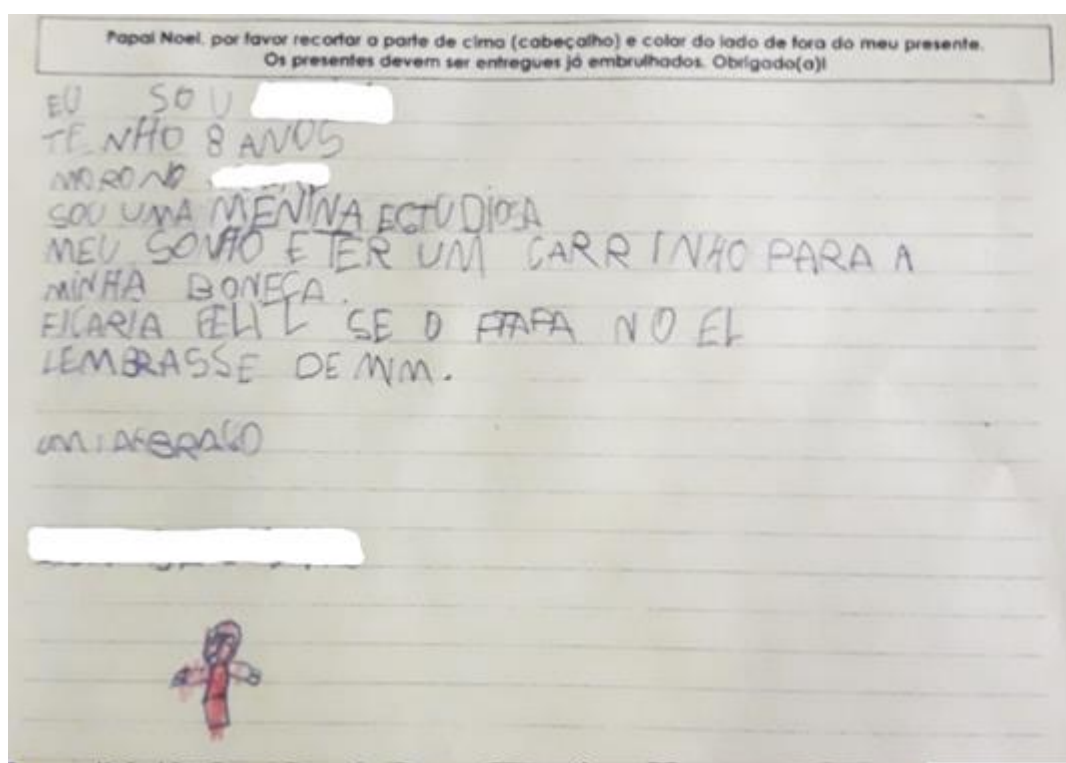 Papai Noel, por favor recortar a parte de cima (cabeçalho) e colar do lado de fora do meu presente.
Os presentes devem ser entregues já embrulhados. Obrigado(a)!
EU SOU
TENHO 8 ANOS
MORO NO
SOU UMA MENINA ESTUDIOSA
MEU SONHO E TER UM CARRINHO PARA A
MINHA BONECA.
FICARIA FELIZ SE O PAPA NOEL
LEMBRASSE DE MIM.
UM ABRAÇO